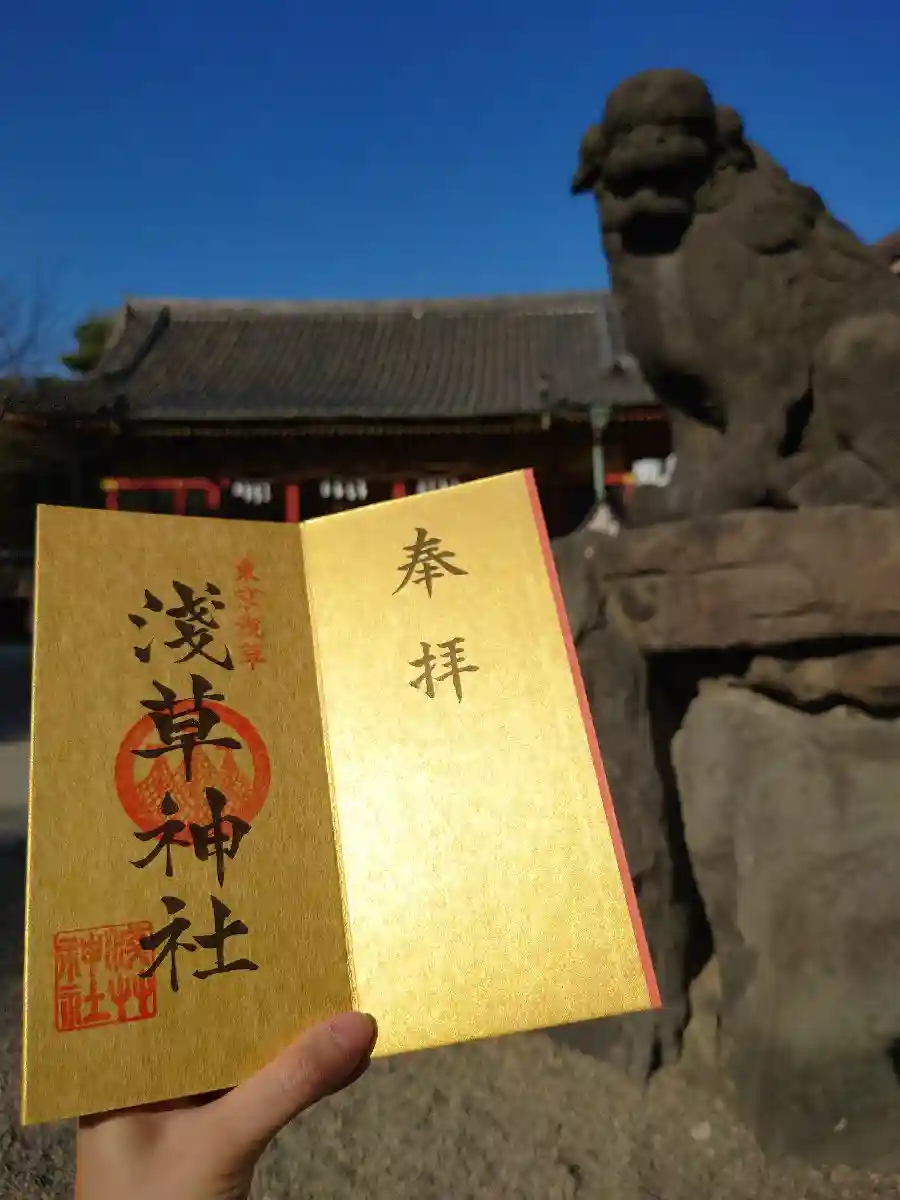 奉拝
東京浅草
淺草神社
浅草神社